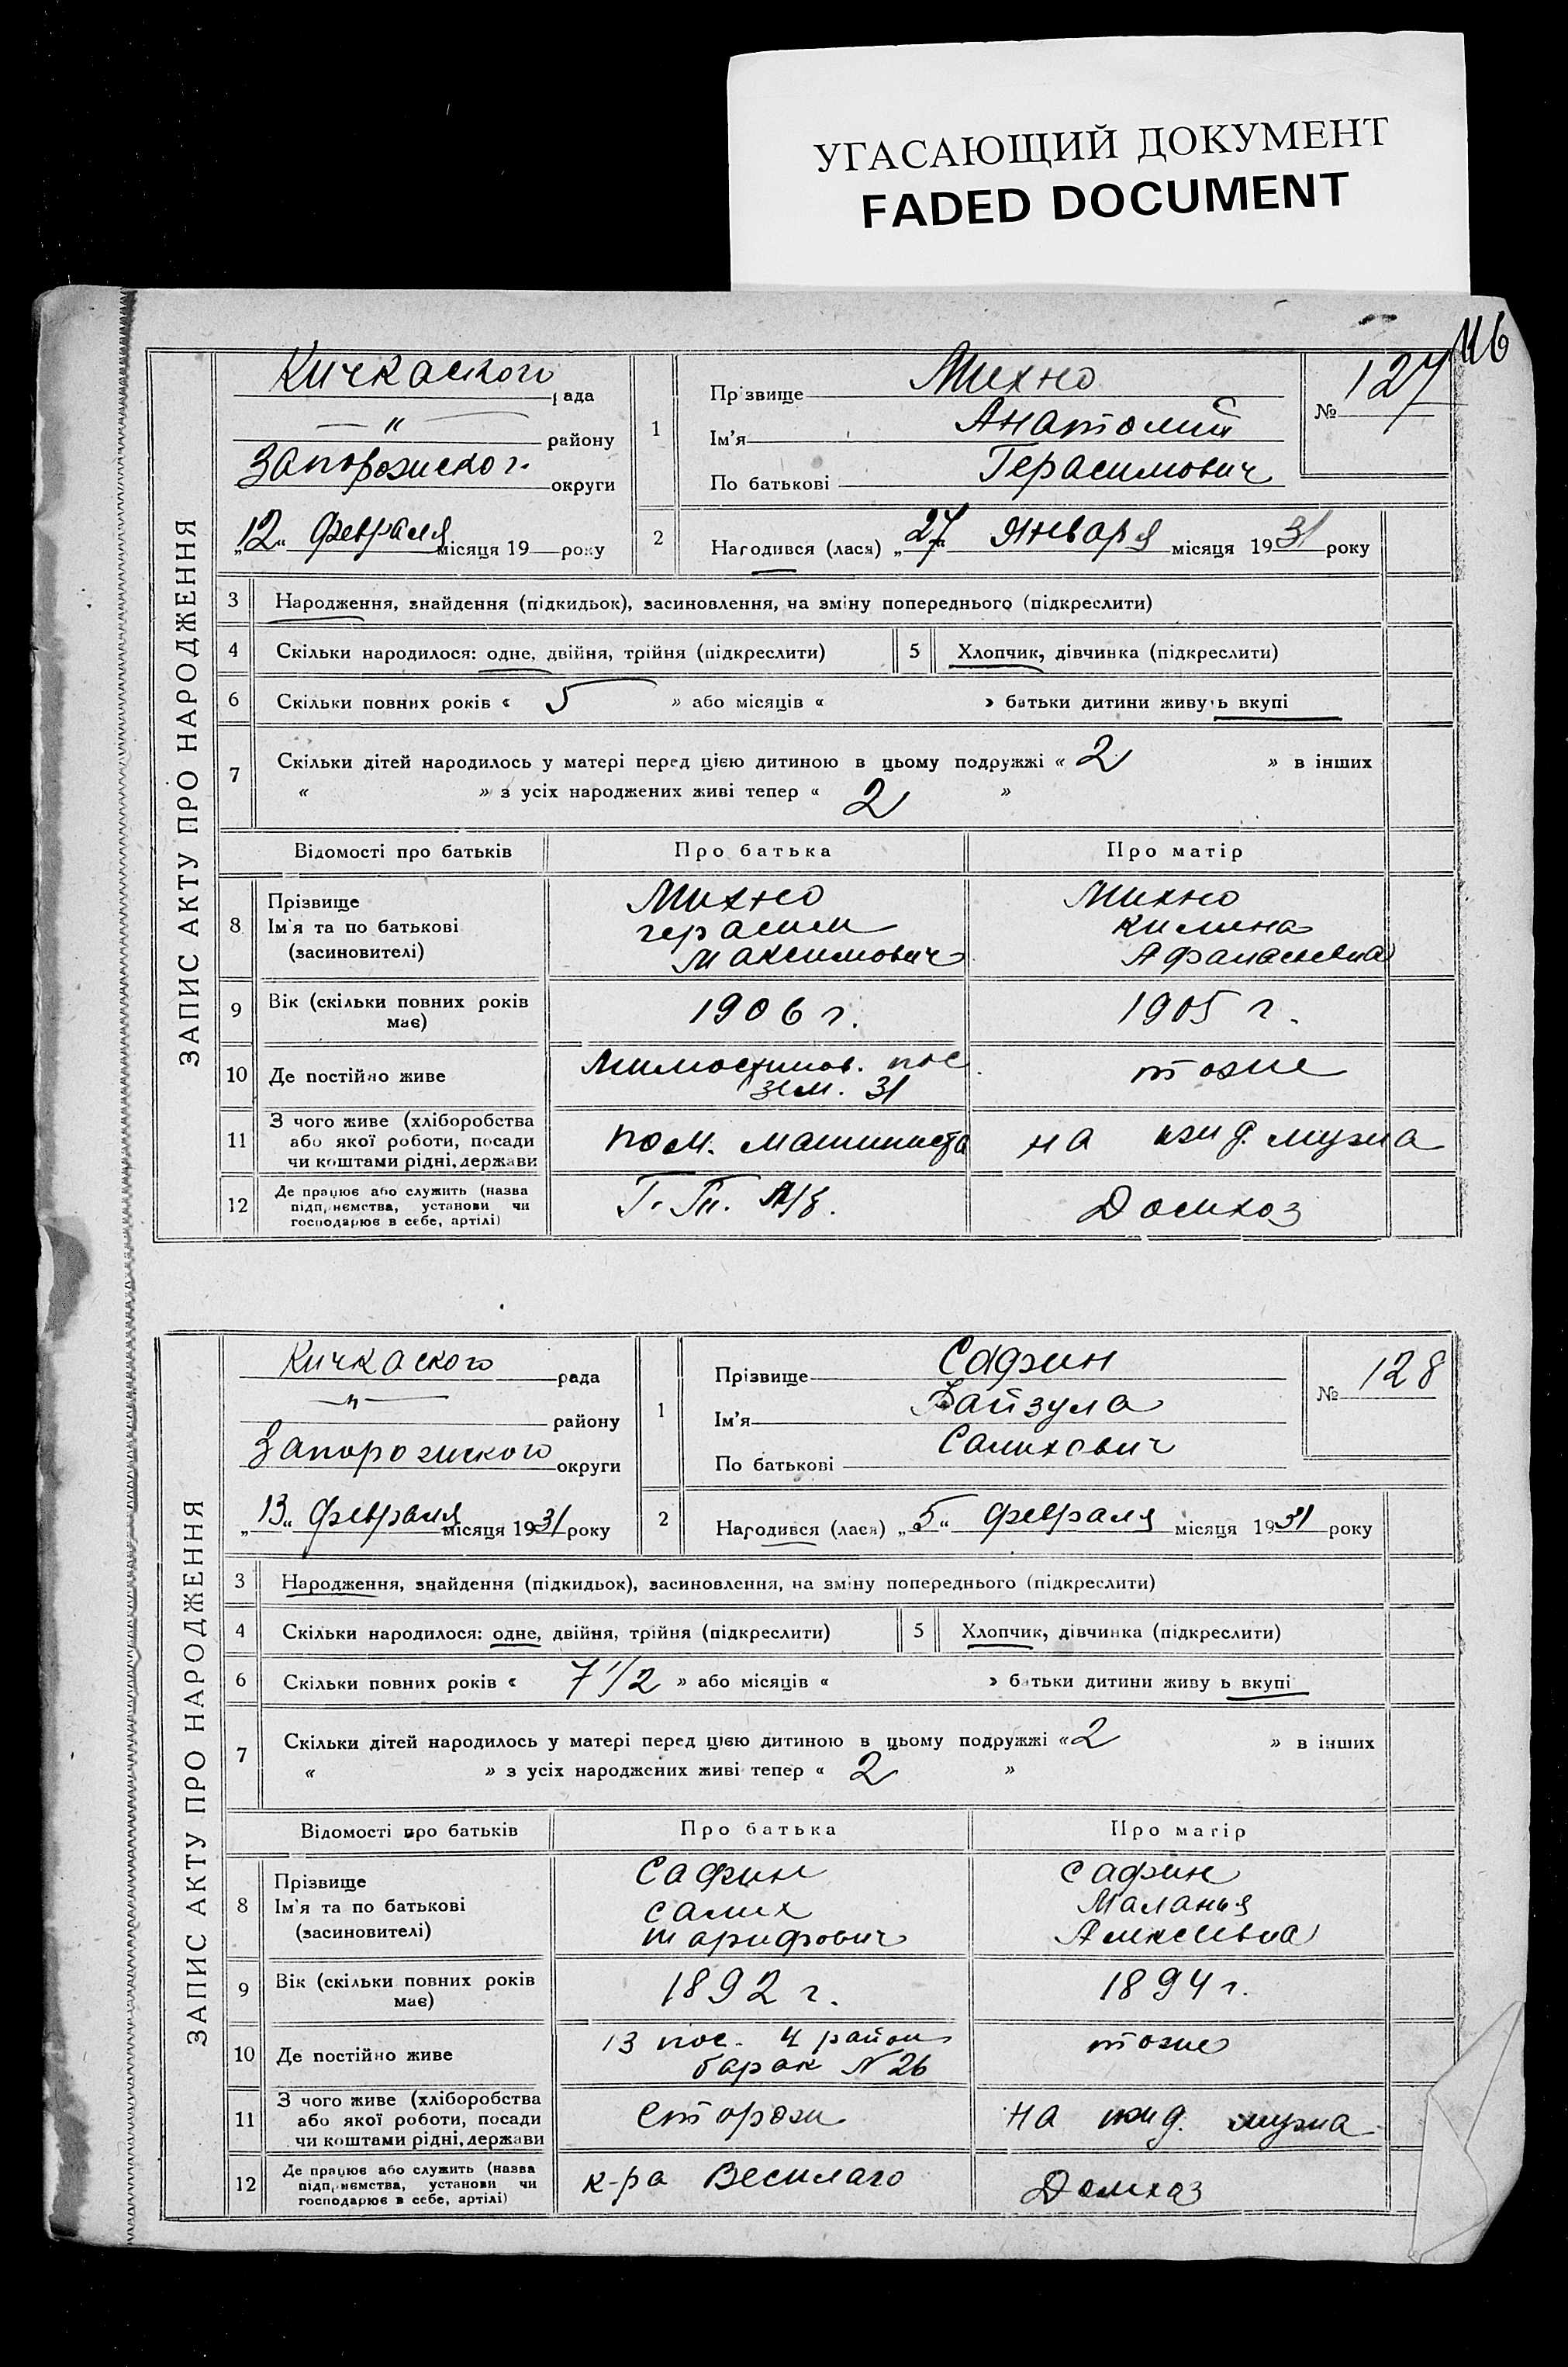 УГАСАЮЩИЙ ДОКУМЕНТ
FADED DOCUMENT
116
ЗАПИС АКТУ ПРО НАРОДЖЕННЯ
Кичкаского рада
—"— району
Запорожског. округи
„12“ февраля місяця 19 року
1
Прізвище Михно
Ім'я Анатолий
По батькові Герасимович
№ 127
2 Народився (лася) „27“ января місяця 1931 року
3 Народження, знайдення (підкидьок), засиновлення, на зміну попереднього (підкреслити)
4 Скільки народилося: одне, двійня, трійня (підкреслити) 5 Хлопчик, дівчинка (підкреслити)
6 Скільки повних років « 5 » або місяців « » батьки дитини живуть вкупі
7 Скільки дітей народилось у матері перед цією дитиною в цьому подружжі « 2 » в інших
« » з усіх народжених живі тепер « 2 »
Відомості про батьків Про батька Про матір
8 Прізвище Михно Михно
Ім'я та по батькові герасим килина
(засиновителі) Максимович Афанасьевна
9 Вік (скільки повних років має) 1906 г. 1905 г.
10 Де постійно живе пос. зем. 31 тоже
11 З чого живе (хліборобства
або якої роботи, посади
чи коштами рідні, держави пом. машиниста на ижд. мужа
12 Де працює або служить (назва
підприємства, установи чи
господарює в себе, артілі) Домхоз
ЗАПИС АКТУ ПРО НАРОДЖЕННЯ
Кичкаского рада
—"— району
Запорожского округи
„13“ февраля місяця 1931 року
1
Прізвище Сафин
Ім'я Файзула
По батькові Салихович
№ 128
2 Народився (лася) „5“ февраля місяця 1931 року
3 Народження, знайдення (підкидьок), засиновлення, на зміну попереднього (підкреслити)
4 Скільки народилося: одне, двійня, трійня (підкреслити) 5 Хлопчик, дівчинка (підкреслити)
6 Скільки повних років « 7 1/2 » або місяців « » батьки дитини живуть вкупі
7 Скільки дітей народилось у матері перед цією дитиною в цьому подружжі « 2 » в інших
« » з усіх народжених живі тепер « 2 »
Відомості про батьків Про батька Про матір
8 Прізвище Сафин Сафин
Ім'я та по батькові Салих Маланья
(засиновителі) Шарифович Алексевна
9 Вік (скільки повних років має) 1892 г. 1894 г.
10 Де постійно живе 13 пос. 4 район барак N 26 тоже
11 З чого живе (хліборобства
або якої роботи, посади
чи коштами рідні, держави сторож на ижд. мужа
12 Де працює або служить (назва
підприємства, установи чи
господарює в себе, артілі) к-ра Весилаго Домхоз